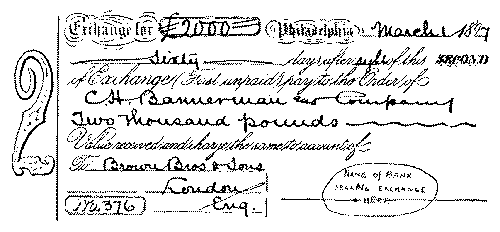 Exchange for £2000 Philadelphia, March 1 1897
Sixty days after sight of this SECOND
of Exchange (First unpaid) pay to the Order of
C.H. Bannerman and Company
Two thousand pounds
Value received and charge the same to account of
To Brown Bros & Sons
London
No. 376 Eng.
NAME OF BANK
SELLING EXCHANGE
HERE